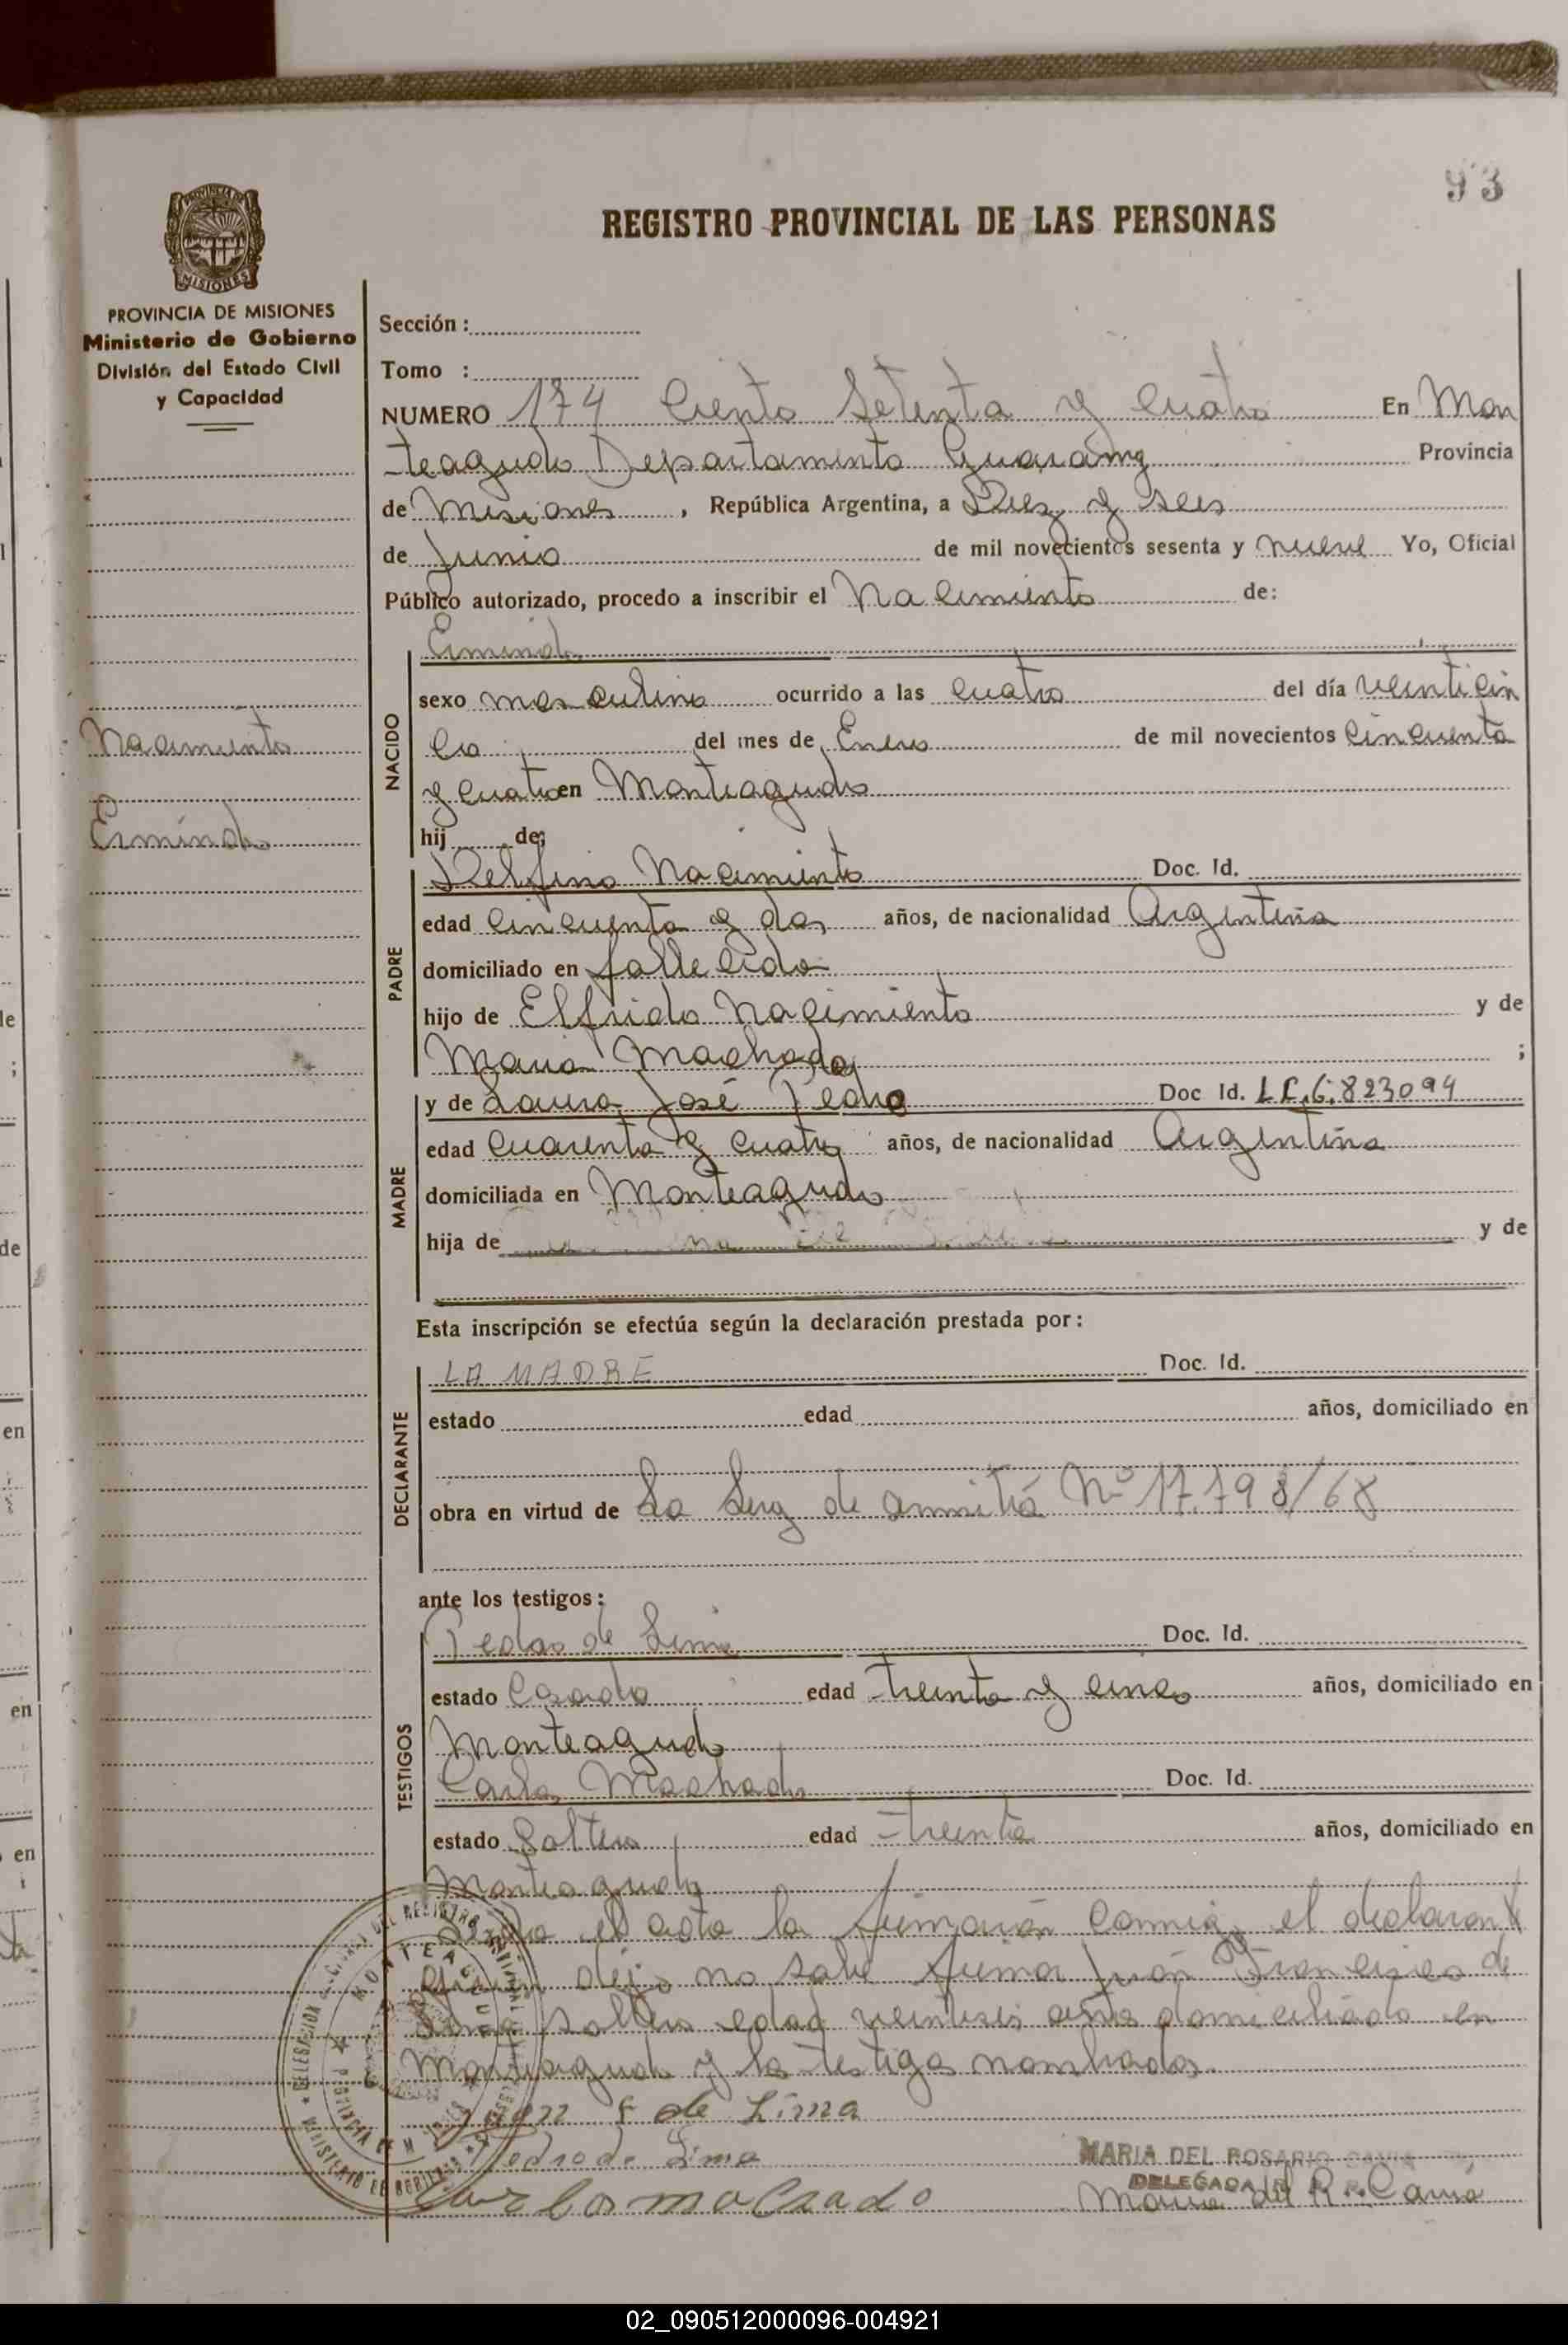 93
REGISTRO PROVINCIAL DE LAS PERSONAS
PROVINCIA DE MISIONES
Ministerio de Gobierno
División del Estado Civil
y Capacidad
Sección :
Tomo :
NUMERO 174 Ciento Setenta y Cuatro En Mon
teagudo Departamento Guaraný Provincia
de Misiones , República Argentina, a Diez y seis
de Junio de mil novecientos sesenta y nueve Yo, Oficial
Público autorizado, procedo a inscribir el Nacimiento de:
Ermindo
NACIDO
sexo masculino ocurrido a las cuatro del día veinticin
co del mes de Enero de mil novecientos cincuenta
y cuatro en Monteagudo
hij de:
Nacimiento
Ermindo
PADRE
Delfino Nacimiento Doc. Id.
edad cincuenta y dos años, de nacionalidad Argentina
domiciliado en fallecido
hijo de Elfrido Nacimiento y de
Maria Machado ;
MADRE
y de Laura José Pedro Doc Id. LC. 6.823094
edad cuarenta y cuatro años, de nacionalidad Argentina
domiciliada en Monteagudo
hija de y de
Esta inscripción se efectúa según la declaración prestada por :
DECLARANTE
LA MADRE Doc. Id.
estado edad años, domiciliado en
obra en virtud de La Ley de amnitiá Nº 17.798/68
ante los testigos :
TESTIGOS
Pedro de Lima Doc. Id.
estado Casado edad treinta y cinco años, domiciliado en
Monteagudo
Carlos Machado Doc. Id.
estado Soltero edad treinta años, domiciliado en
Monteagudo
el acta la firmaron conmigo el declarante
quien dijo no sabe firmar Juan Francisco de
Lima soltero edad veintiseis años domiciliado en
Monteagudo y los testigos nombrados.
Juan F de Lima
Pedro de Lima
Carlos machado
MARIA DEL ROSARIO
DELEGADA
Maria del R.
02_090512000096-004921